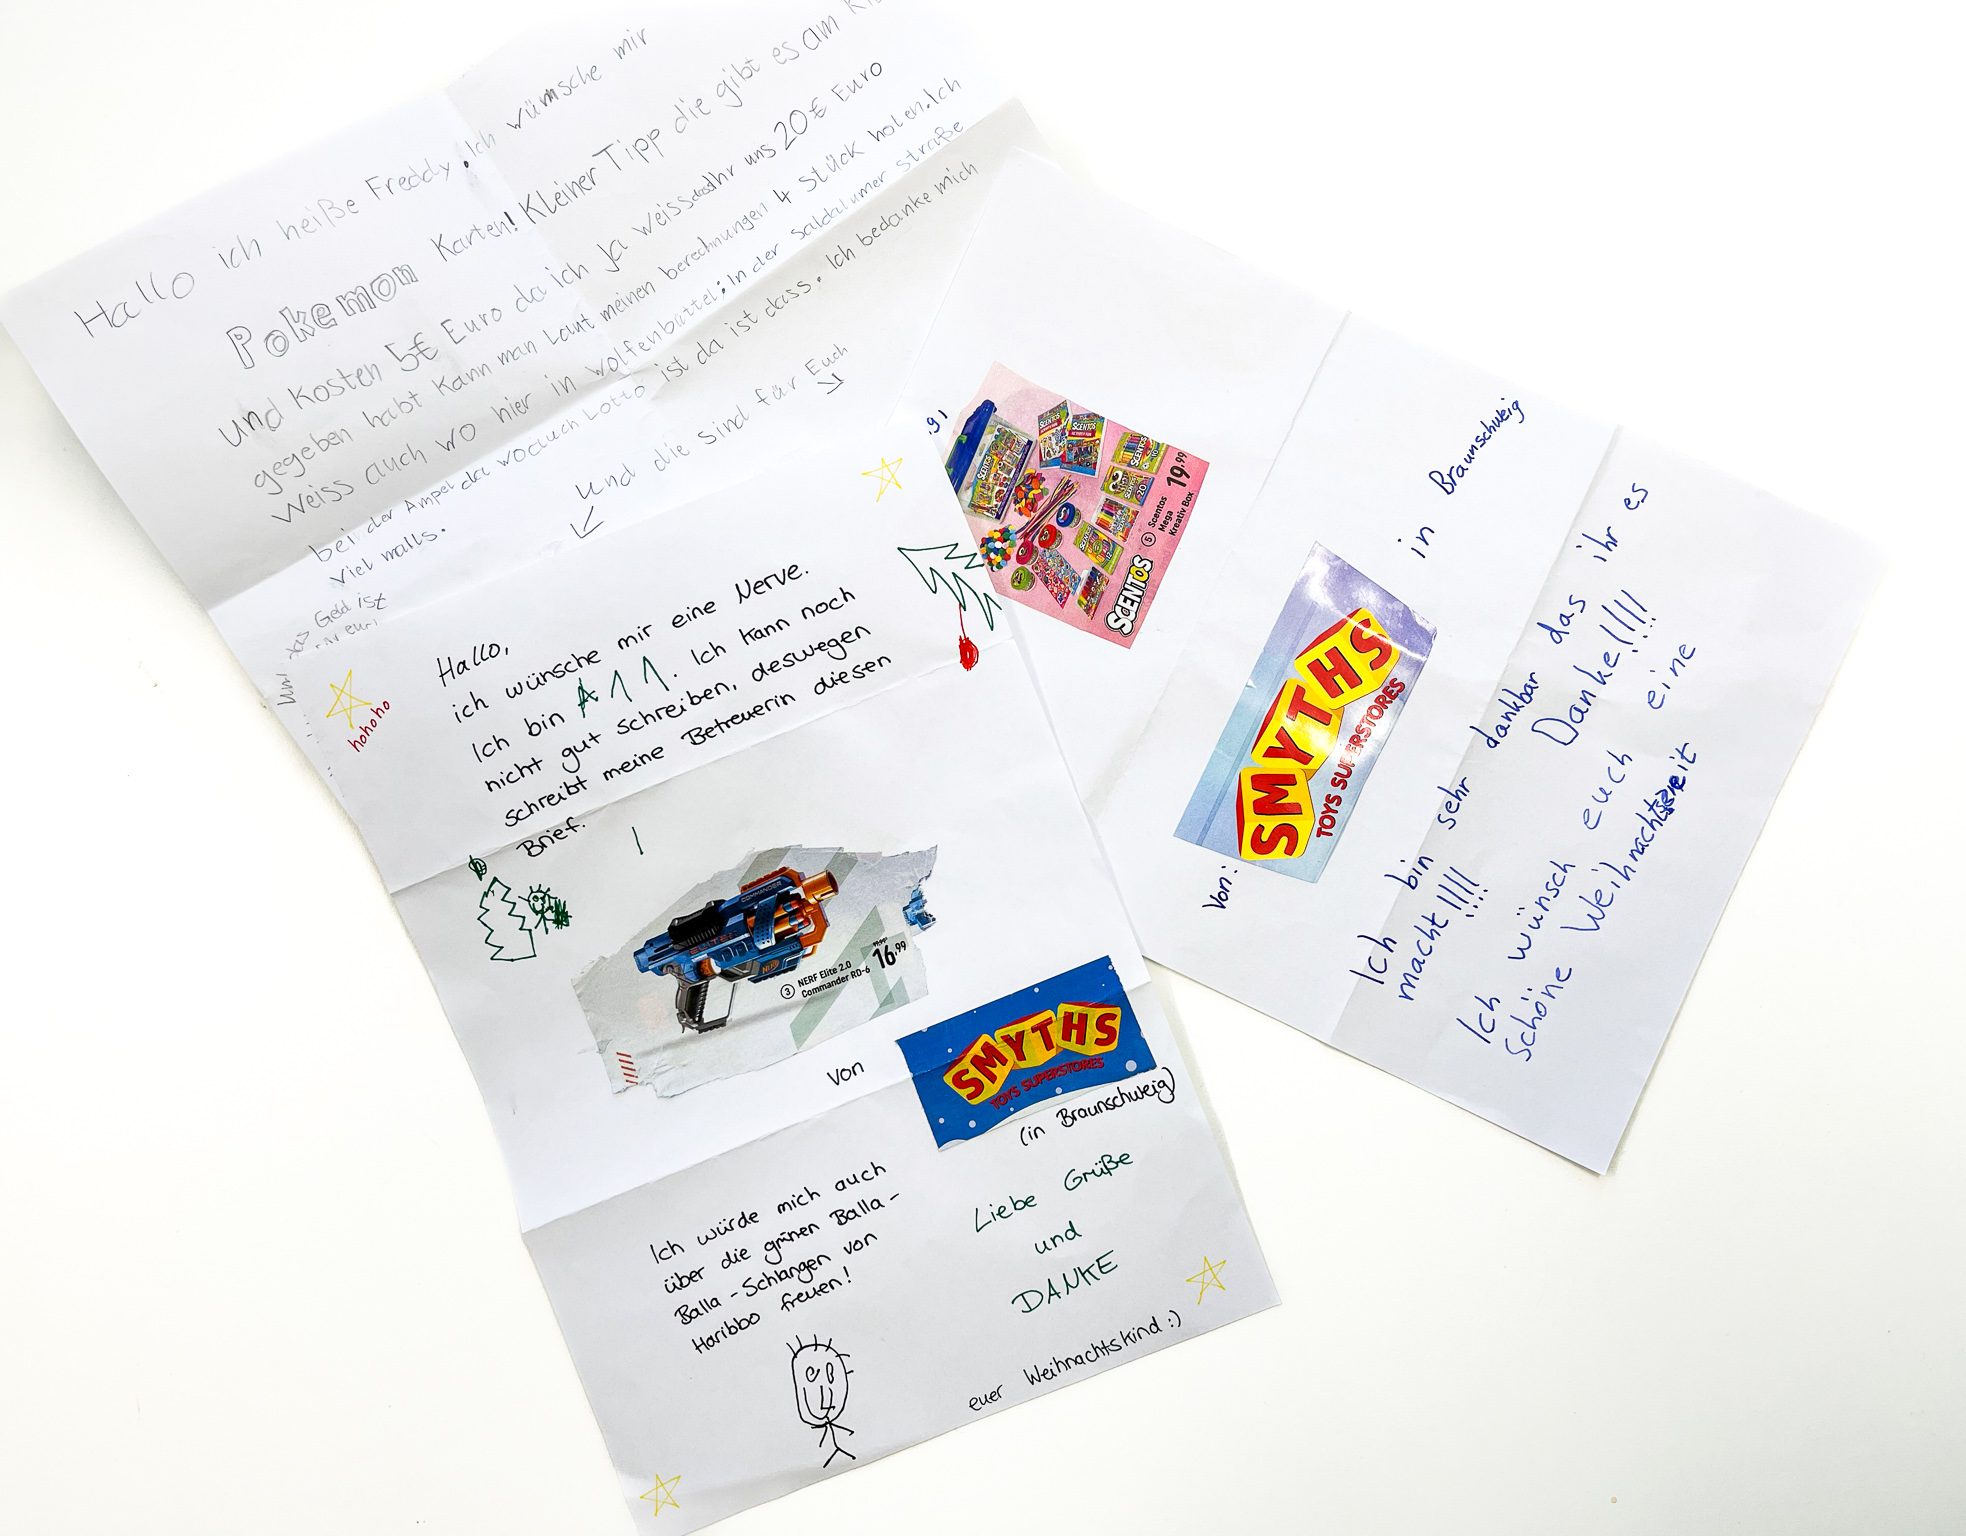 Hallo ich heiße Freddy. Ich wümsche mir
Pokemon Karten! Kleiner Tipp die gibt es am
und kosten 5€ Euro da ich ja weiss dass Ihr uns 20€ Euro
gegeben habt kann man laut meinen berechnungen 4 stück holen. Ich
weiss auch wo hier in wolfenbüttel; In der saldalumer straße
bei der Ampel da wo auch Lotto ist da ist dass. Ich bedanke mich
viel malls.
und die sind für Euch
das Geld ist
Hallo,
ich wünsche mir eine Nerve.
Ich bin A11. Ich kann noch
nicht gut schreiben, deswegen
schreibt meine Betreuerin diesen
Brief.
hohoho
COMMANDER
ELITE
NERF
3 NERF Elite 2.0
Commander RD-6
16,99
von
SMYTHS
TOYS SUPERSTORES
(in Braunschweig)
Ich würde mich auch
über die grünen Balla-
Balla-Schlangen von
Haribbo freuen!
Liebe Grüße
und
DANKE
euer Weihnachtskind :)
SCENTOS
5 Scentos
Mega
Kreativ Box
19,99
Von:
SMYTHS
TOYS SUPERSTORES
in Braunschweig
Ich bin sehr dankbar das ihr es
macht!!!! Danke!!!!
Ich wünsch euch eine
Schöne Weihnachtszeit